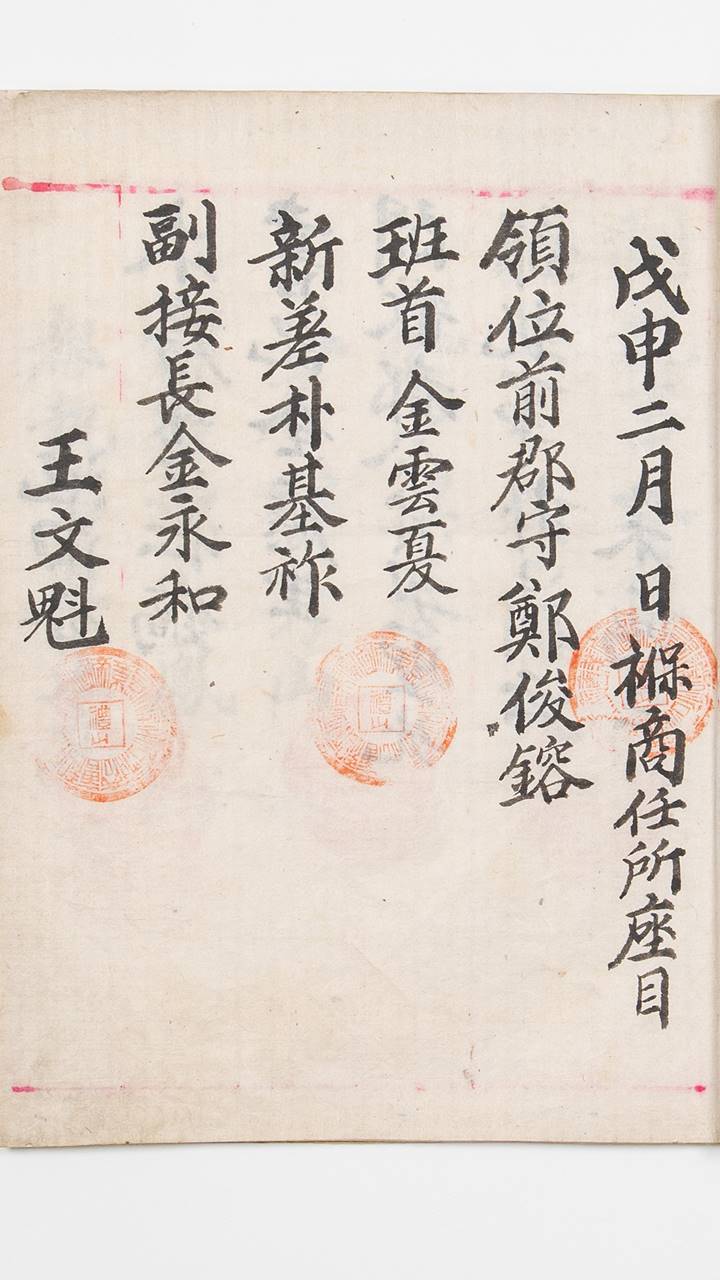 戊申二月 日 褓商任所座目
領位前郡守鄭俊鎔
班首 金雲夏
新差朴基祚
副接長金永和
王文魁
禮山
禮山